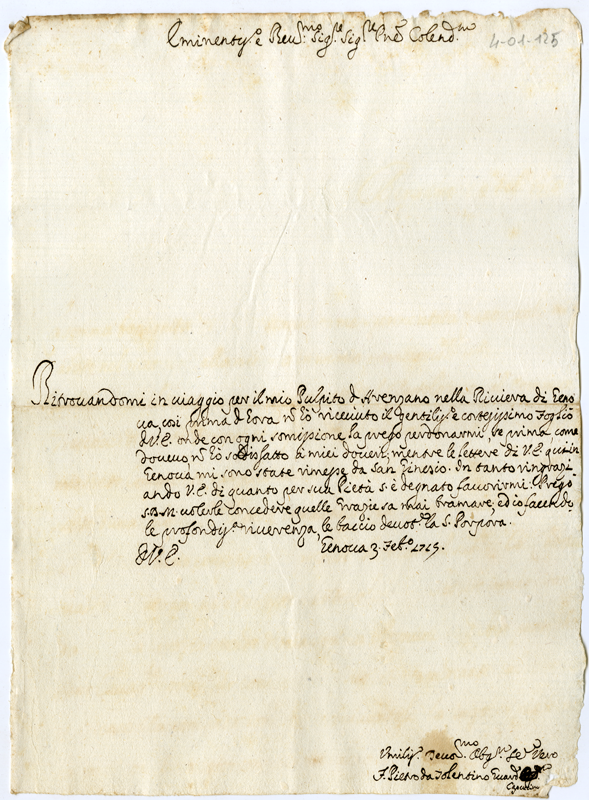 Eminentis.º e Reu.mo Sig.re Sig.re Pne Colend.mo
4-01-125
Ritrouandomi in uiaggio per il mio Pulpito d'Arenzano nella Riuiera di Geno
ua, così prima d'ora nõ hò riceuuto il gentilis.º e cortesissimo foglio
di V.E. onde con ogni somissione la prego perdonarmi, se prima, come
doueuo, nõ hò sodisfatto à miei doueri; mentre le lettere di V.E. qui in
Genoua mi sono state rimesse da San Ginesio. In tanto ringrazi
ando V.E. di quanto per sua Pietà s'è degnato fauorirmi: Prego
S.D.M. uolerle concedere quelle grazie sa mai bramare, ed io facendo
le profondis.ª riuerenza, le baccio deuot.te la S. Porpora.
D.V.E. Genoua 3. Feb.º 1715.
Vmilis.º Deuo.mo Obg.mo Se.re Vero
F. Pietro da Tolentino Guard.